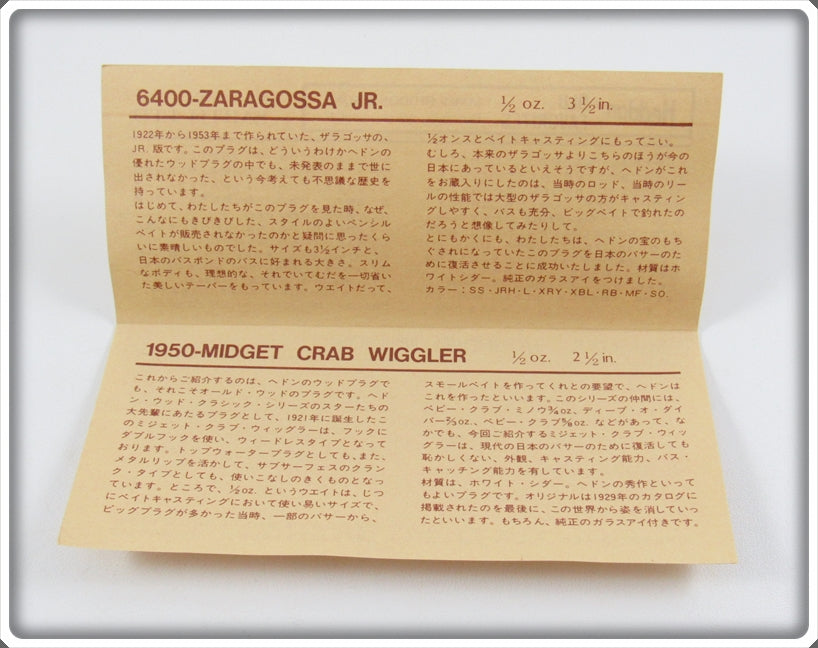 6400-ZARAGOSSA JR. ½ oz. 3 ½ in.
1922年から1953年まで作られていた、ザラゴッサの、
JR. 版です。このプラグは、どういうわけかヘドンの
優れたウッドプラグの中でも、未発表のままで世に
出されなかった、という今考えても不思議な歴史を
持っています。
はじめて、わたしたちがこのプラグを見た時、なぜ、
こんなにもきびきびした、スタイルのよいペンシル
ベイトが販売されなかったのかと疑問に思ったくら
いに素晴しいものでした。サイズも3½インチと、
日本のバスポンドのバスに好まれる大きさ。スリム
なボディも、理想的な、それでいてむだを一切省い
た美しいテーパーをもっています。ウエイトだって、
½オンスとベイトキャスティングにもってこい。
むしろ、本来のザラゴッサよりこちらのほうが今の
日本にあっているといえそうですが、ヘドンがこれ
をお蔵入りにしたのは、当時のロッド、当時のリー
ルの性能では大型のザラゴッサの方がキャスティン
グしやすく、バスも充分、ビッグベイトで釣れたの
だろうと想像してみたりして。
とにもかくにも、わたしたちは、ヘドンの宝のもち
ぐされになっていたこのプラグを日本のバサーのた
めに復活させることに成功いたしました。材質はホ
ワイトシダー。純正のガラスアイをつけました。
カラー：SS・JRH・L・XRY・XBL・RB・MF・SO.
1950-MIDGET CRAB WIGGLER ½ oz. 2 ½ in.
これからご紹介するのは、ヘドンのウッドプラグで
も、それこそオールド・ウッドのプラグです。ヘド
ン・ウッド・クラシック・シリーズのスターたちの
大先輩にあたるプラグとして、1921年に誕生したこ
のミジェット・クラブ・ウィッグラーは、フックに
ダブルフックを使い、ウィードレスタイプとなって
おります。トップウォータープラグとしても、また、
メタルリップを活かして、サブサーフェスのクラン
ク・タイプとしても、使いこなしのきくものとなっ
ています。ところで、½oz. というウエイトは、じつ
にベイトキャスティングにおいて使い易いサイズで、
ビッグプラグが多かった当時、一部のバサーから、
スモールベイトを作ってくれとの要望で、ヘドンは
これを作ったといいます。このシリーズの仲間には、
ベビー・クラブ・ミノウ¾oz、ディープ・オ・ダイ
バー⅖oz.、ベビー・クラブ⅝oz. などがあって、な
かでも、今回ご紹介するミジェット・クラブ・ウィッ
グラーは、現代の日本のバサーのために復活しても
恥かしくない、外観、キャスティング能力、バス・
キャッチング能力を有しています。
材質は、ホワイト・シダー。ヘドンの秀作といって
もよいプラグです。オリジナルは1929年のカタログに
掲載されたのを最後に、この世界から姿を消していっ
たといいます。もちろん、純正のガラスアイ付きです。